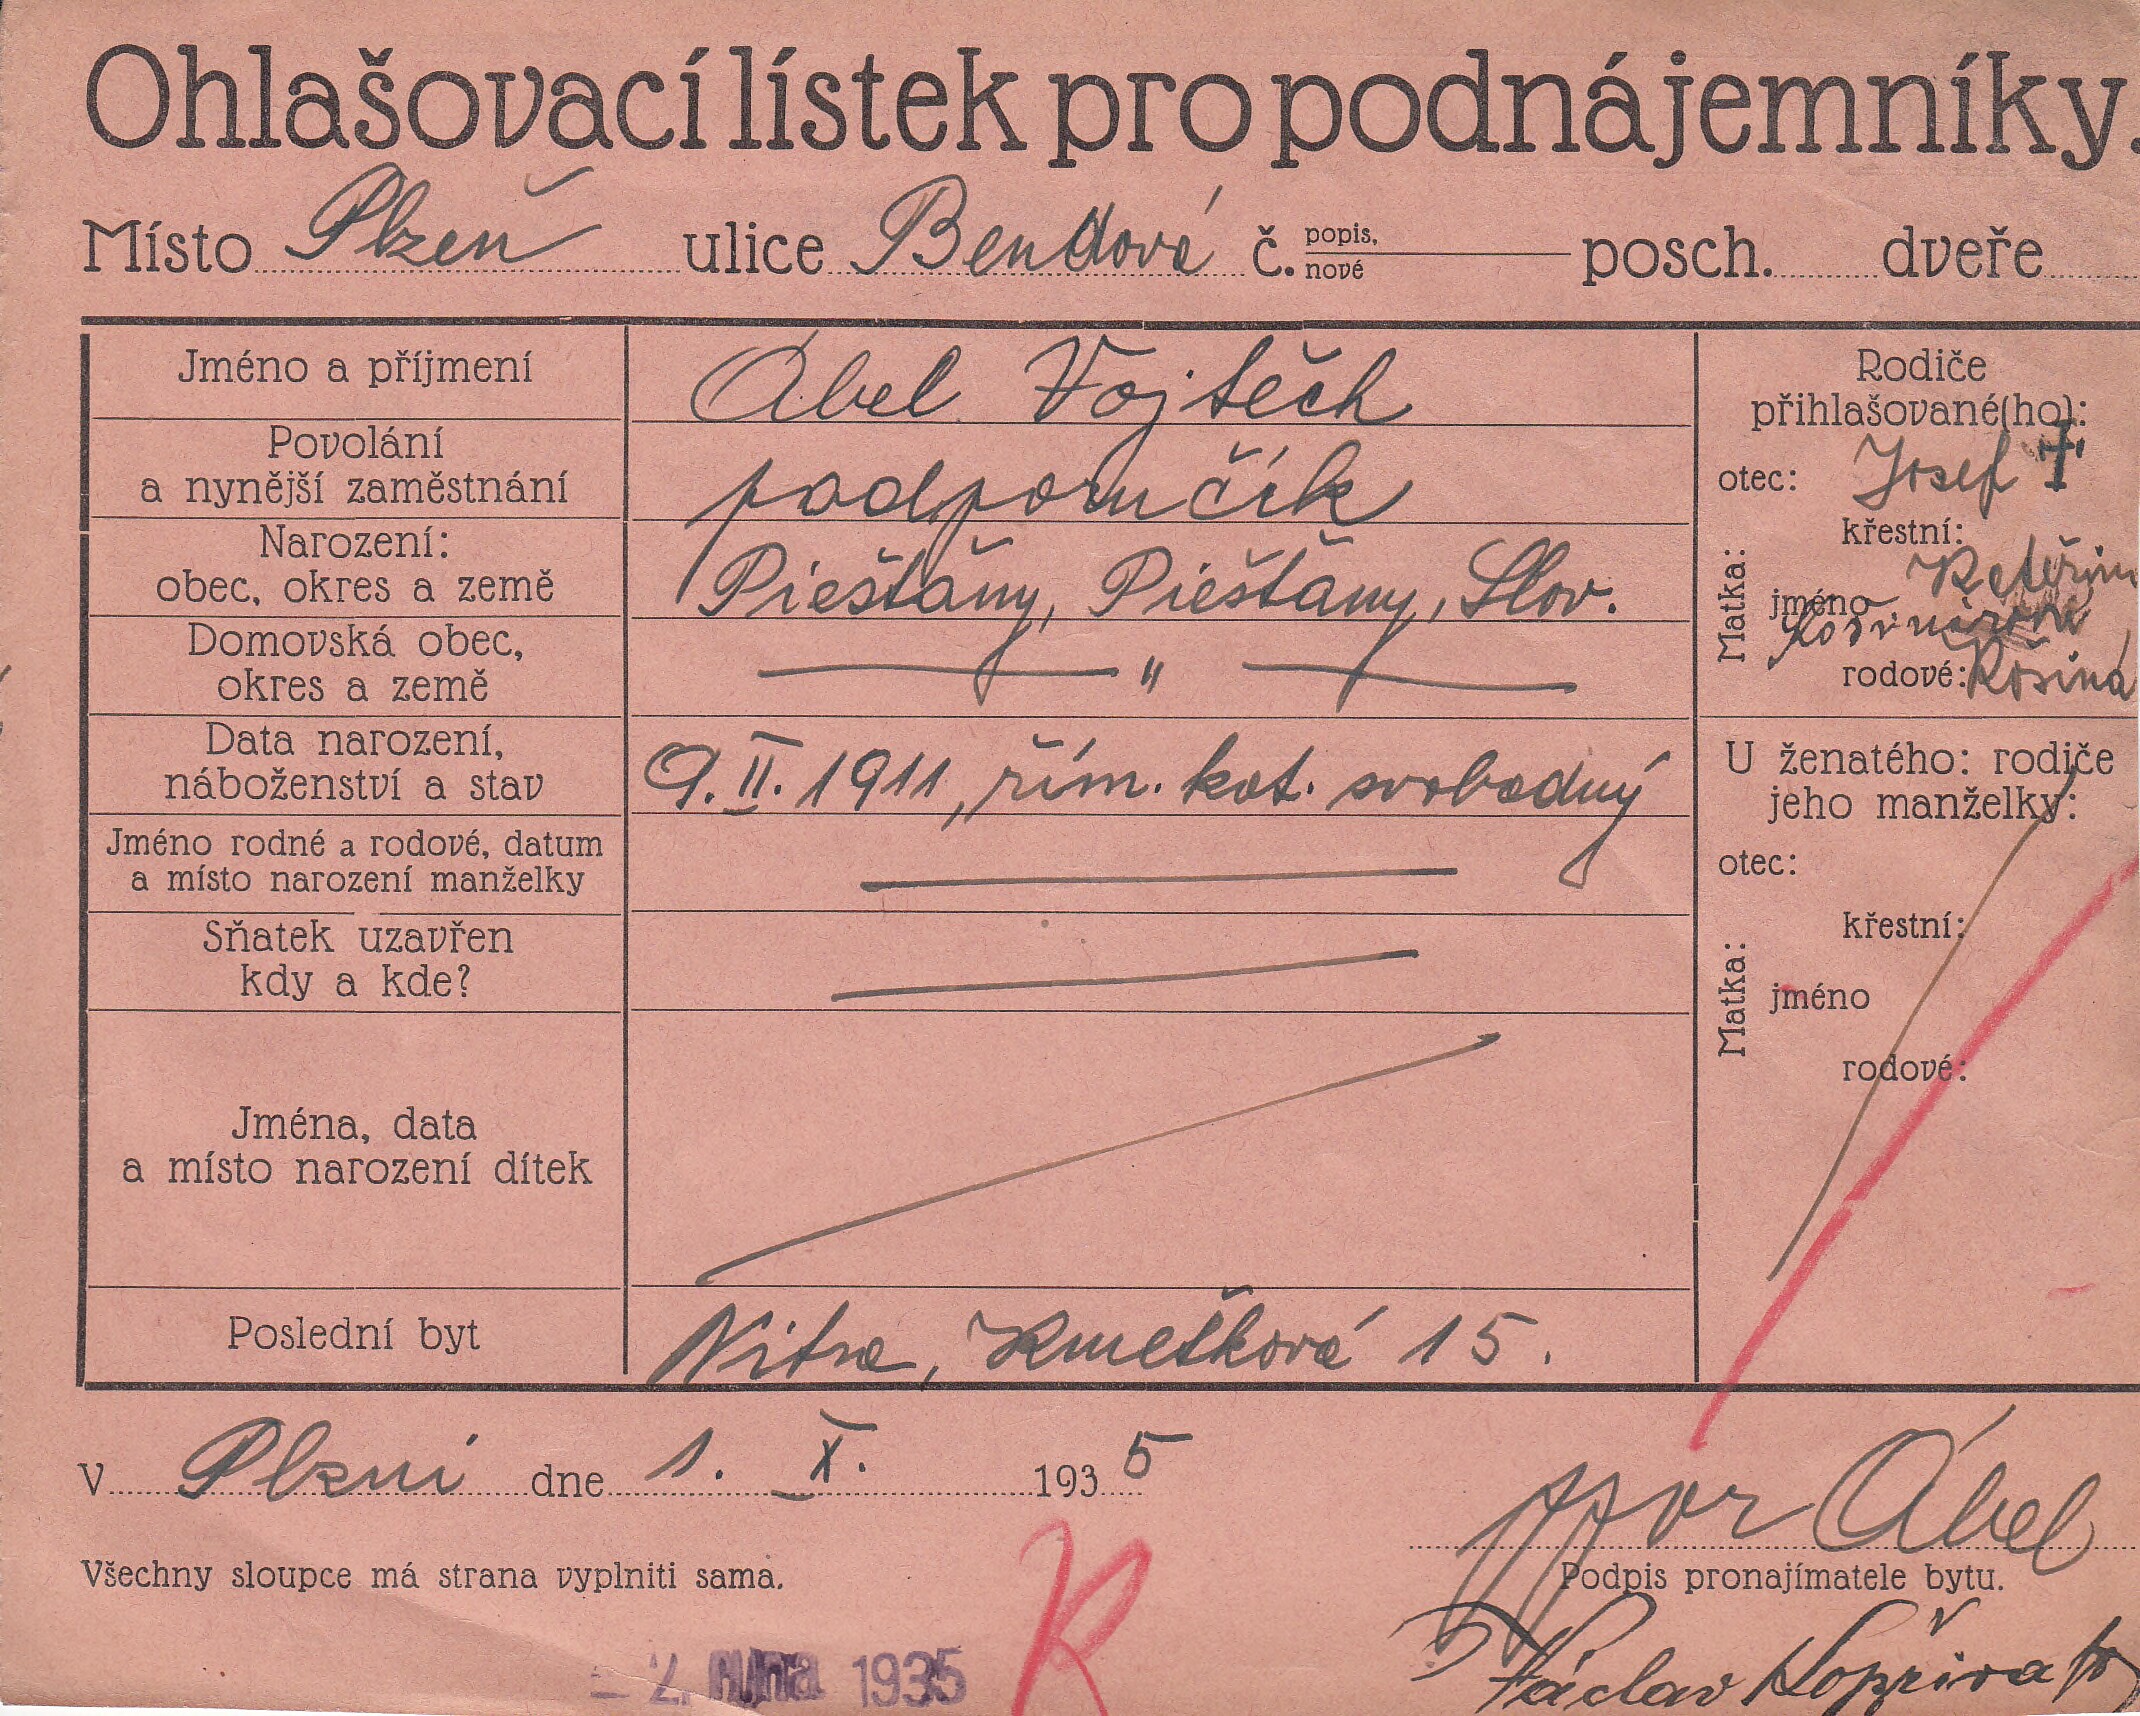 Ohlašovací lístek pro podnájemníky.
Místo Plzeň ulice Bendová č. popis, nové posch. dveře
Jméno a příjmení Ábel Vojtěch
Povolání
a nynější zaměstnání podporučík
Narození:
obec, okres a země Piešťany, Piešťany, Slov.
Domovská obec,
okres a země — " —
Data narození,
náboženství a stav 9. II. 1911, řím. kat. svobodný
Jméno rodné a rodové, datum
a místo narození manželky
Sňatek uzavřen
kdy a kde?
Jména, data
a místo narození dítek
Poslední byt Nitra, Kmeťková 15.
Rodiče
přihlašované(ho):
otec: Josef †
Matka:
křestní:
jméno
rodové:
U ženatého: rodiče
jeho manželky:
otec:
Matka:
křestní:
jméno
rodové:
V Plzni dne 1. X. 1935
ppor Ábel
Všechny sloupce má strana vyplniti sama.
Podpis pronajímatele bytu.
R
Václav
- 2. října 1935